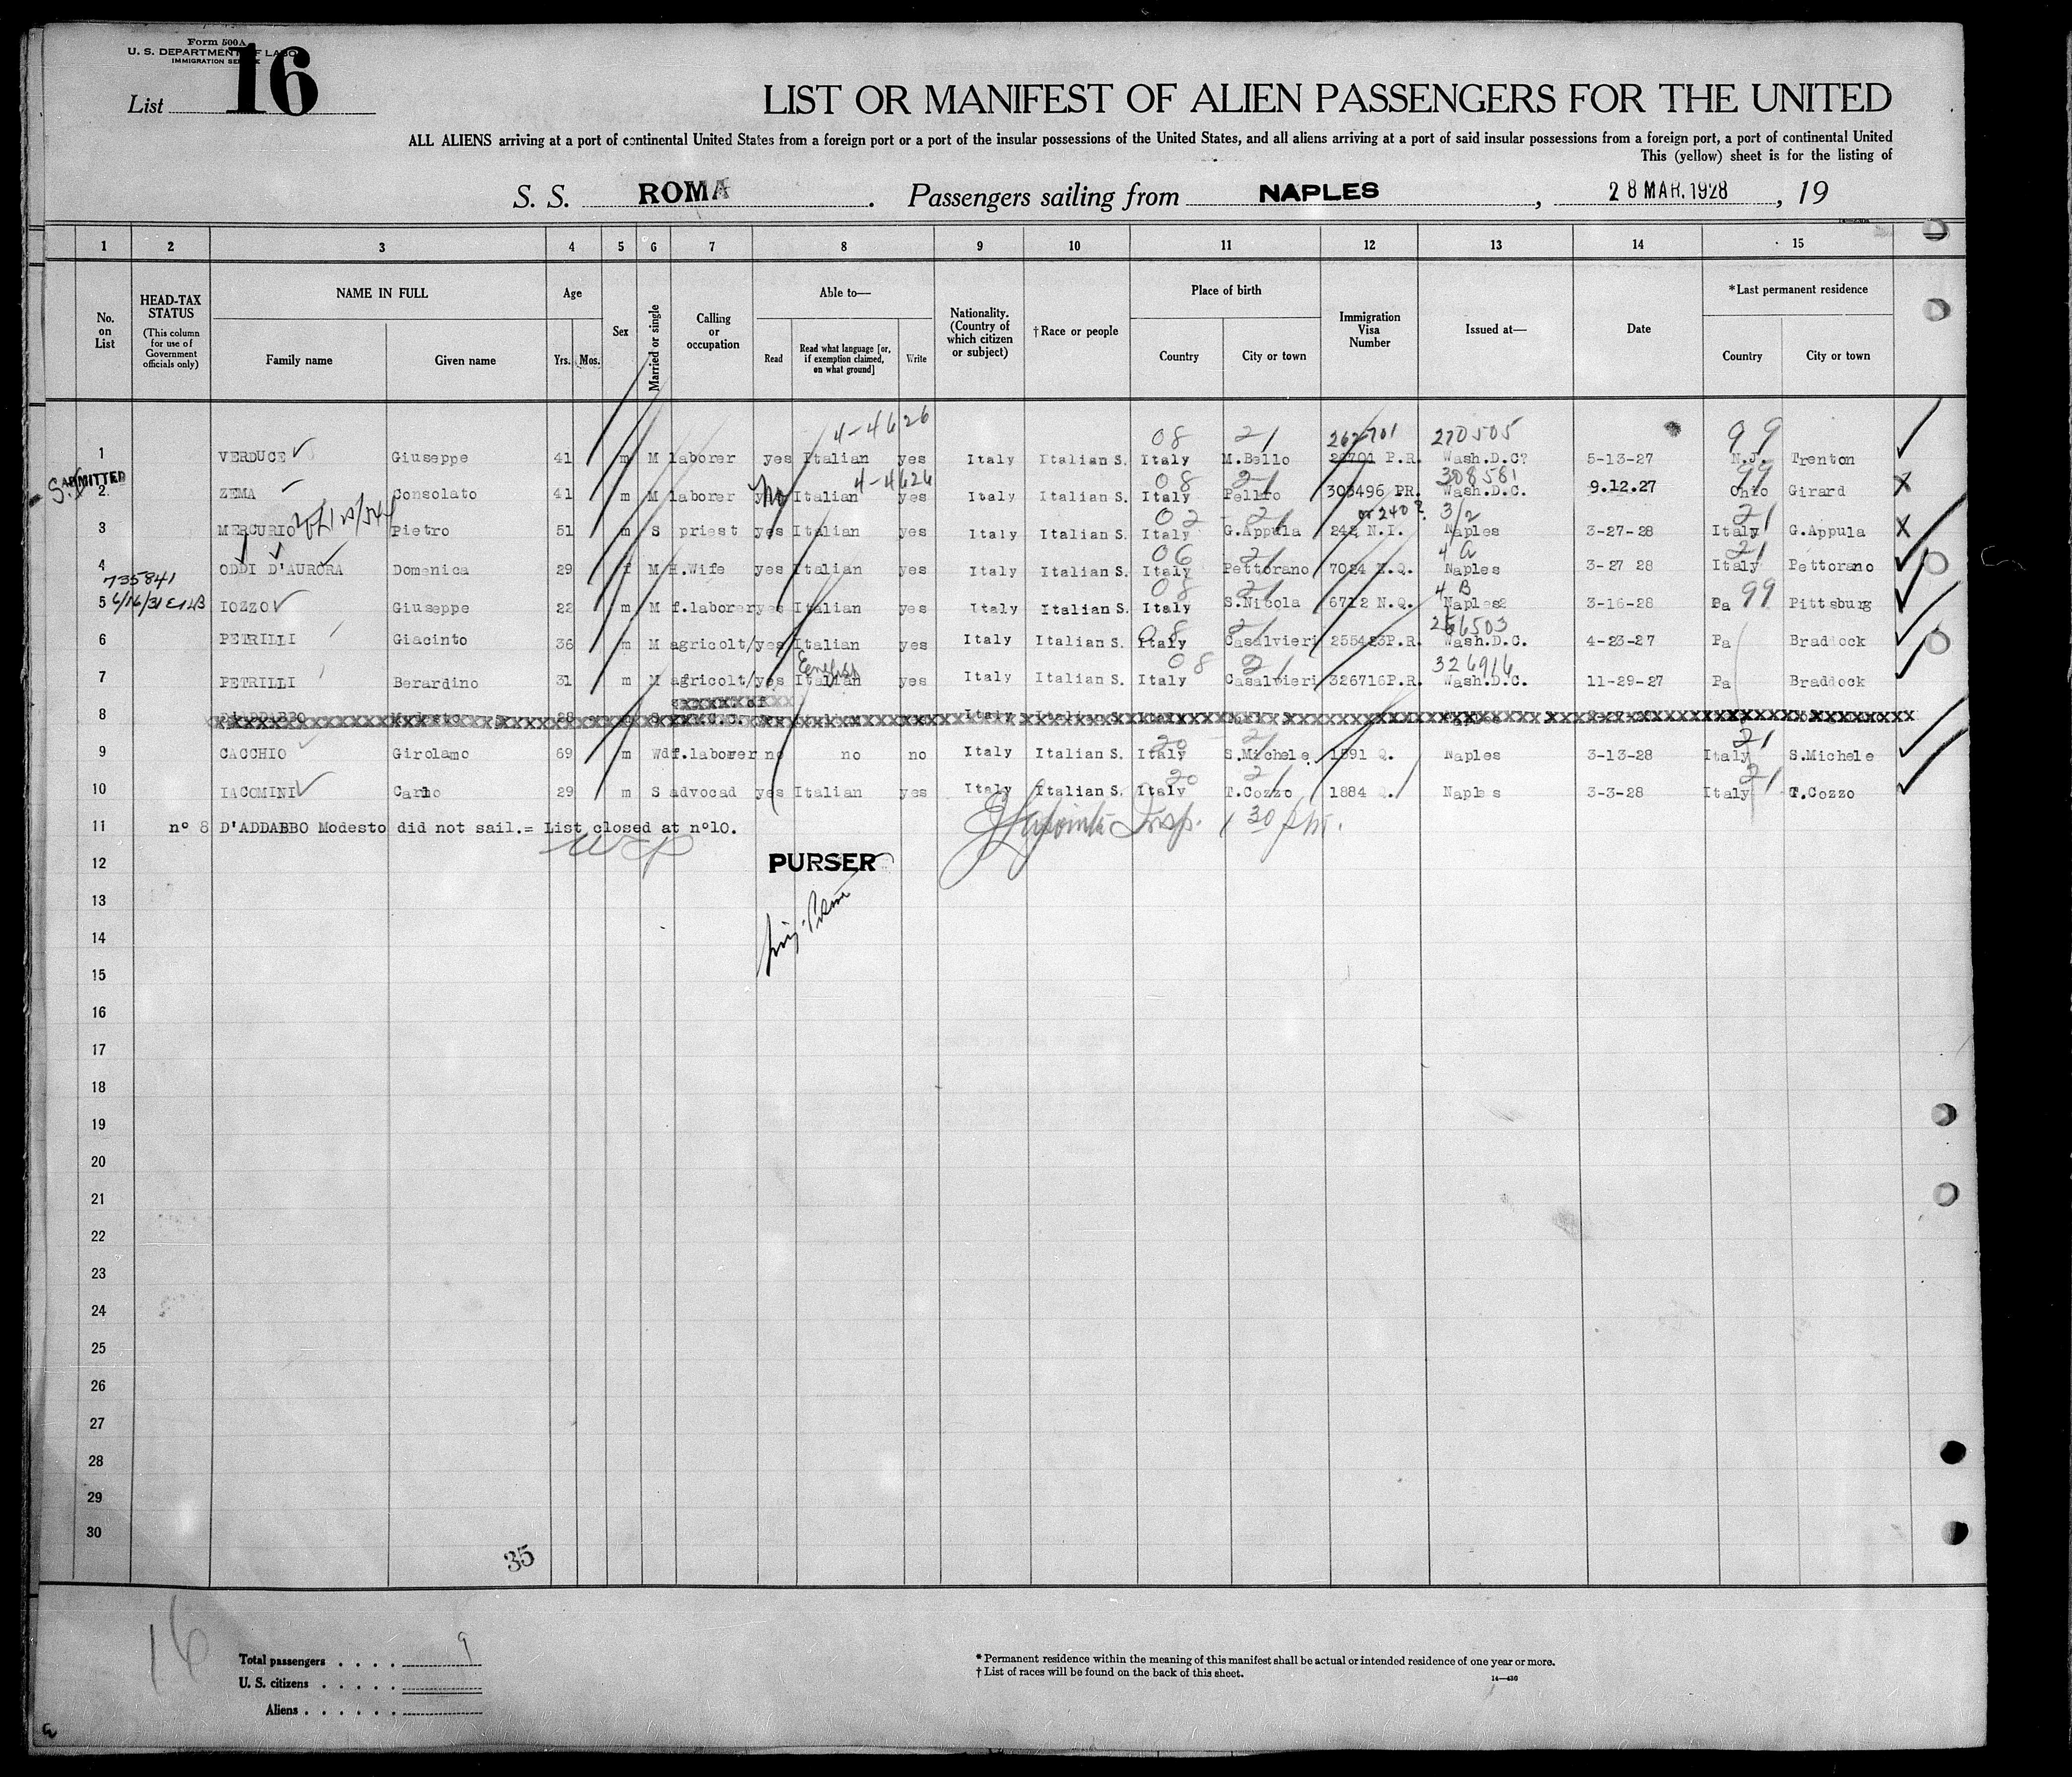 Form 500A
U. S. DEPARTMENT OF LABOR
IMMIGRATION SE
List 16
LIST OR MANIFEST OF ALIEN PASSENGERS FOR THE UNITED
ALL ALIENS arriving at a port of continental United States from a foreign port or a port of the insular possessions of the United States, and all aliens arriving at a port of said insular possessions from a foreign port, a port of continental United
This (yellow) sheet is for the listing of
S. S. ROMA. Passengers sailing from NAPLES, 28 MAR. 1928, 19
1 2 3 4 5 6 7 8 9 10 11 12 13 14 15
No. on List
HEAD-TAX STATUS (This column for use of Government officials only)
NAME IN FULL
Family name Given name
Age
Yrs. Mos.
Sex
Married or single
Calling or occupation
Able to—
Read Read what language [or, if exemption claimed, on what ground] Write
Nationality. (Country of which citizen or subject)
†Race or people
Place of birth
Country City or town
Immigration Visa Number
Issued at—
Date
*Last permanent residence
Country City or town
4-4626 08 21 262701 270505 99
1 VERDUCE Giuseppe 41 m M laborer yes Italian yes Italy Italian S. Italy M.Bello 26701 P.R. Wash.D.C? 5-13-27 N.J. Trenton
ADMITTED 4-4626 08 21 308581 99
2 ZEMA Consolato 41 m M laborer No Italian yes Italy Italian S. Italy Pellro 303496 PR. Wash.D.C. 9.12.27 Ohio Girard
02 21 or 240? 3/2 21
3 MERCURIO Pietro 51 m S priest yes Italian yes Italy Italian S. Italy G.Appula 242 N.I. Naples 3-27-28 Italy G.Appula
06 21 4 a 21
4 ODDI D'AURORA Domenica 29 f M H.Wife yes Italian yes Italy Italian S. Italy Pettorano 7024 N.Q. Naples 3-27 28 Italy Pettorano
735841 08 21 4 B
5 6/16/31 IOZZO Giuseppe 22 m M f.laborer yes Italian yes Italy Italian S. Italy S.Nicola 6712 N.Q. Naples 3-16-28 Pa 99 Pittsburg
08 21 256503
6 PETRILLI Giacinto 36 m M agricolt/ yes Italian yes Italy Italian S. Italy Casalvieri 255423P.R. Wash.D.C. 4-23-27 Pa Braddock
English 08 21 326916
7 PETRILLI Berardino 31 m M agricolt/ yes Italian yes Italy Italian S. Italy Casalvieri 326716P.R. Wash.D.C. 11-29-27 Pa Braddock
8
20 21 21
9 CACCHIO Girolamo 69 m Wd f.laborer no no no Italy Italian S. Italy S.Michele 1591 Q. Naples 3-13-28 Italy S.Michele
20 21 21
10 IACOMINI Carlo 29 m S advocad yes Italian yes Italy Italian S. Italy T.Cozzo 1884 Q. Naples 3-3-28 Italy T.Cozzo
11 n° 8 D'ADDABBO Modesto did not sail.= List closed at n°10.
Insp. 1 30 p.m.
12 PURSER
13
14
15
16
17
18
19
20
21
22
23
24
25
26
27
28
29
30
35
16
Total passengers 9
U. S. citizens
Aliens
* Permanent residence within the meaning of this manifest shall be actual or intended residence of one year or more.
† List of races will be found on the back of this sheet.
14—430